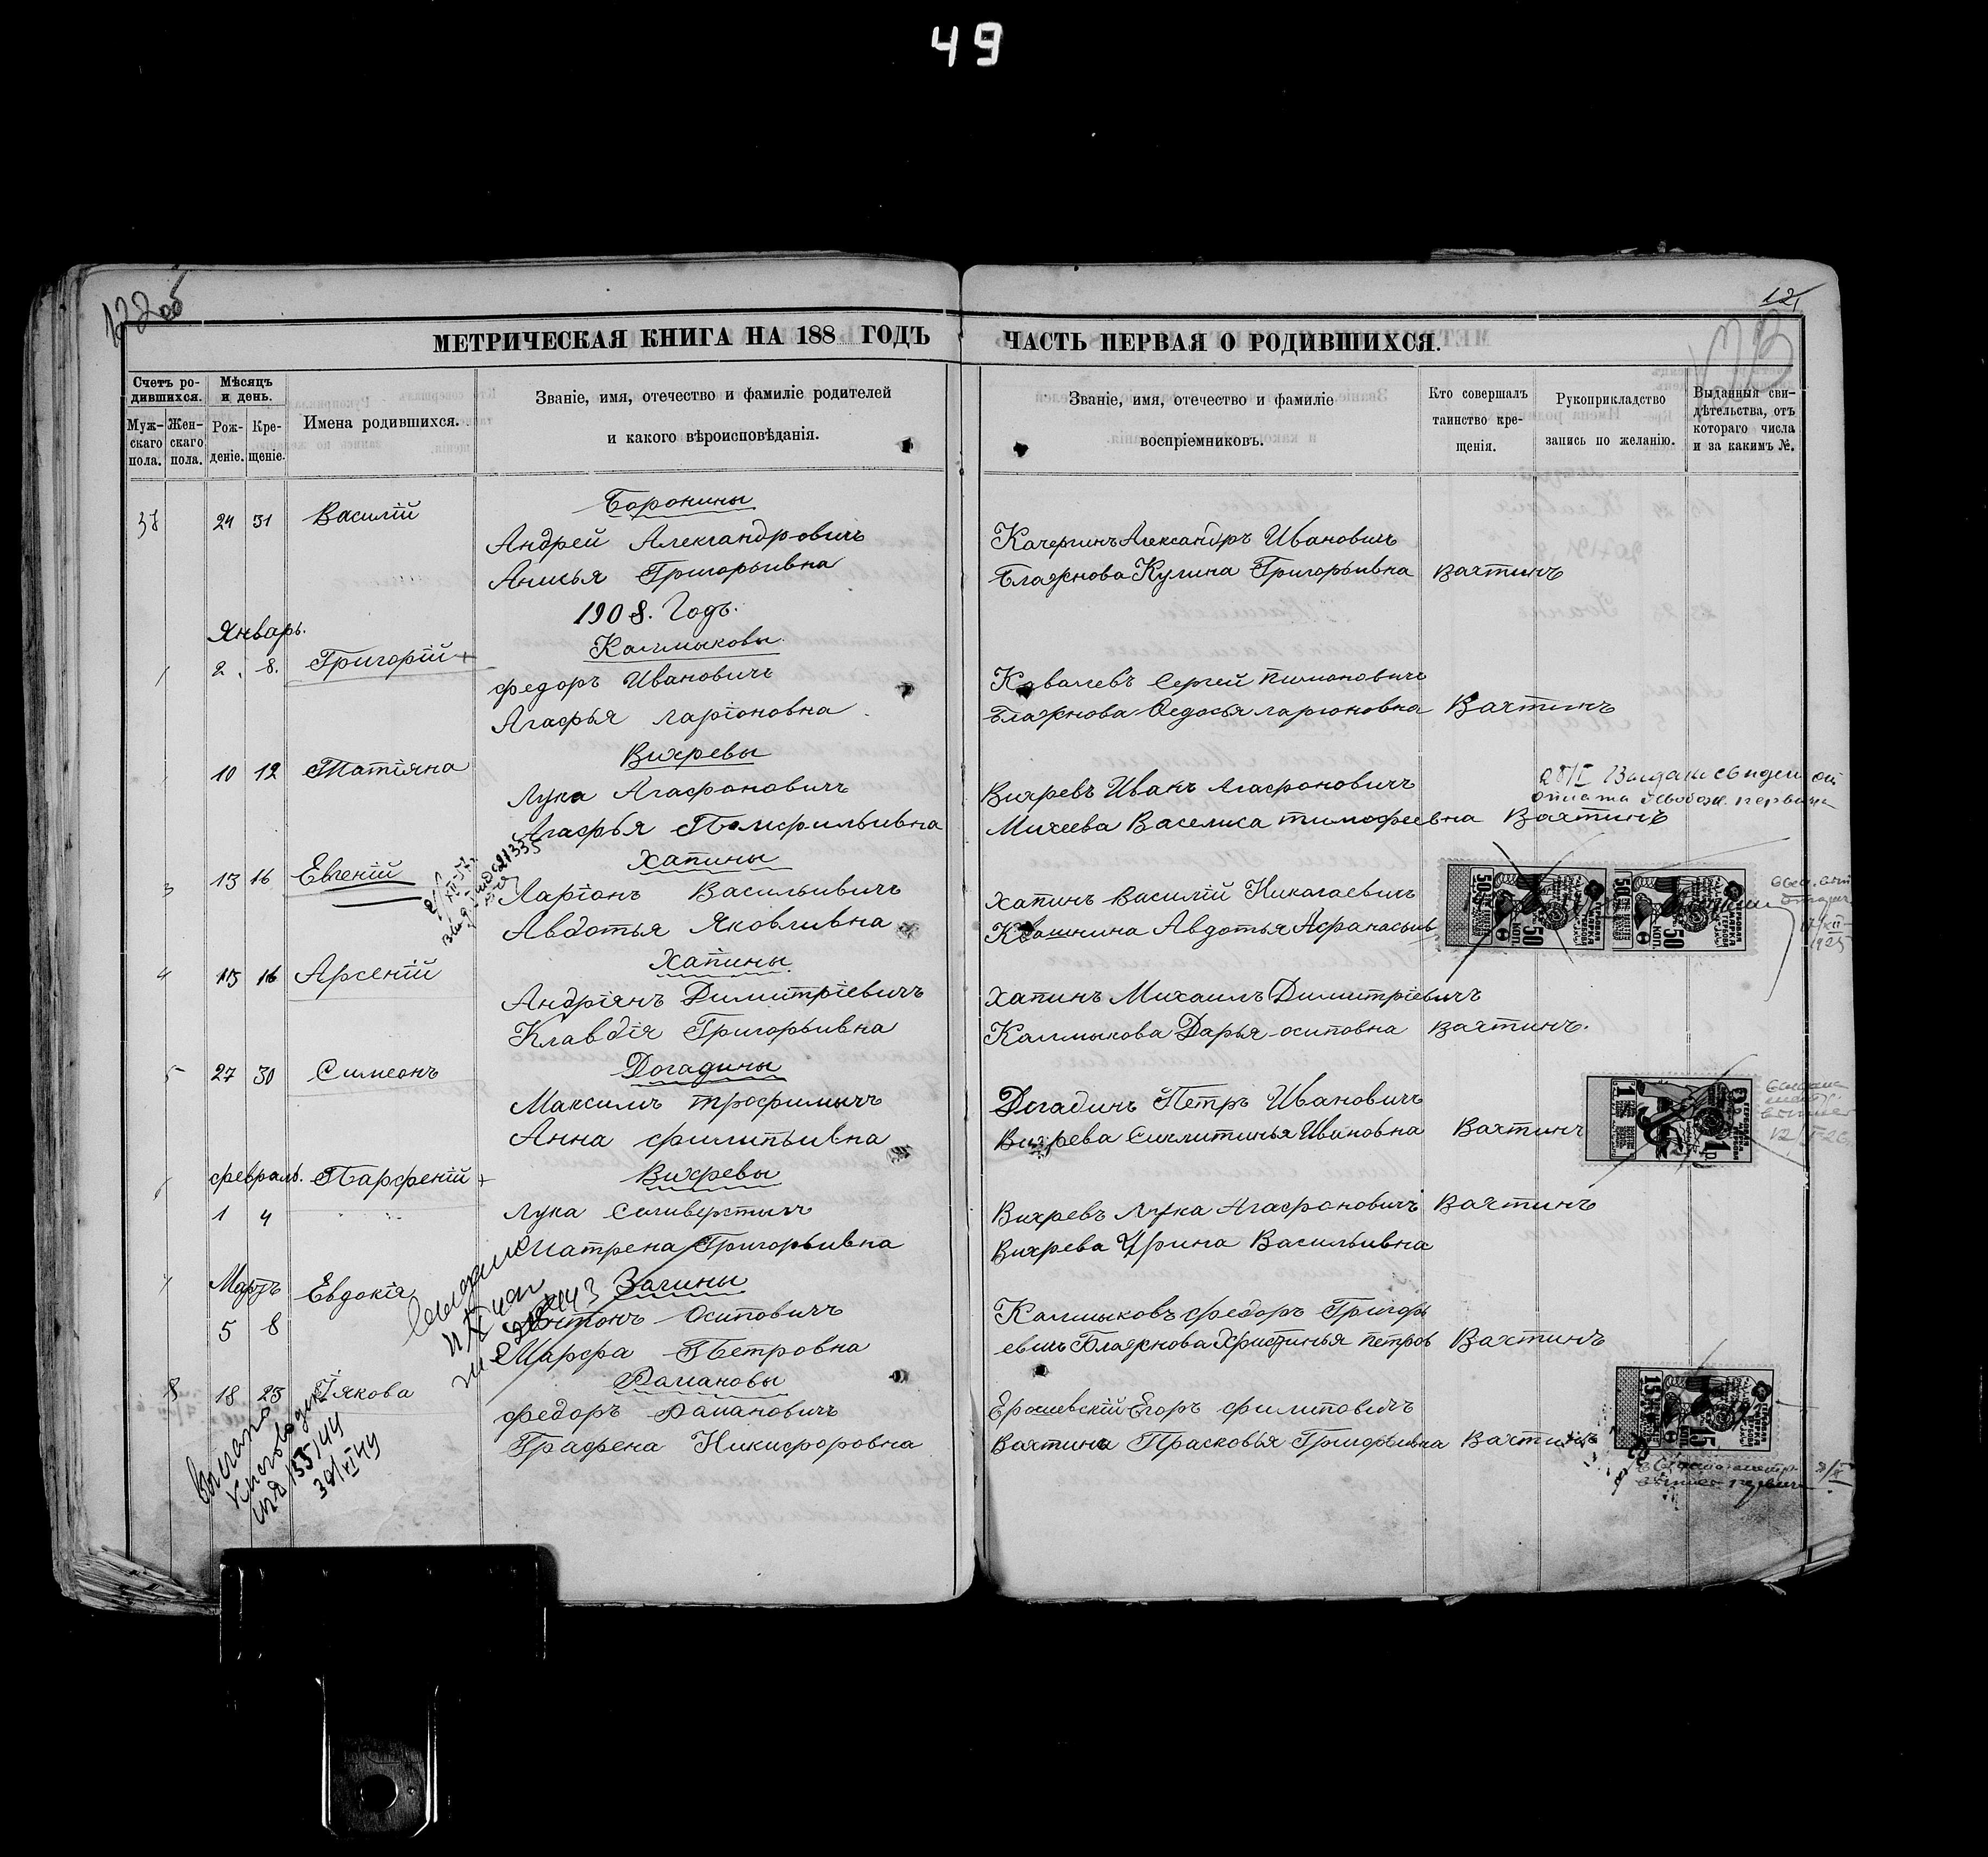 49
122об
12
МЕТРИЧЕСКАЯ КНИГА НА 188 ГОДЪ
ЧАСТЬ ПЕРВАЯ О РОДИВШИХСЯ.
Счетъ ро-
дившихся.
Мѣсяцъ
и день.
Муж-
скаго
пола.
Жен-
скаго
пола.
Рож-
деніе.
Кре-
щеніе.
Имена родившихся.
Званіе, имя, отечество и фамиліе родителей
и какого вѣроисповѣданія.
Званіе, имя, отечество и фамиліе
воспріемниковъ.
Кто совершалъ
таинство кре-
щенія.
Рукоприкладство
запись по желанію.
Выданныя сви-
дѣтельства, отъ
котораго числа
и за какимъ №.
37 24 31 Василій Боронины
Андрей Александровичъ
Анисья Григорьивна
Качергинъ Александръ Ивановичъ
Блажнова Кулина Григорьивна Вахтинъ
1908. Годъ.
Январь.
1 2. 8. Григорій + Калмыковы
федоръ Ивановичъ
Агафья ларіоновна
Ковалевъ Сергей пимоновичъ
Блажнова Федосья ларионовна Вахтинъ
10 12 Татіяна Вихревы
Лука Агафоновичъ
Агафья Помфильивна
Вихревъ Иванъ Агафоновичъ
Михеева Васелиса тимофеевна Вахтинъ
3 13 16 Евгеній Хапины
Ларіонъ Васильивичъ
Авдотья Яковливна
хапинъ Василій Николаевичъ
Квашнина Авдотья Афанасьив
50 КОП.
50 КОП.
1925
4 15 16 Арсеній Хапины
Андріянъ Димитріевичъ
Клавдія Григорьивна
хапинъ Михаилъ Димитріевичъ
Калмыкова Дарья осиповна Вахтинъ.
5 27 30 Симеонъ Догадины
Максимъ трофимычъ
Анна филипьивна
Догадинъ Петръ Ивановичъ
Вихрева Сиклитинья Ивановна Вахтинъ
февраль. Парфеній + Вихревы
1 4
Лука Селиверстычъ
Матрена Григорьивна
Вихревъ Лука Агафоновичъ Вахтинъ
Вихрева Ирина Васильивна
Мартъ Евдокія Загины
5 8
Антонъ Осиповичъ
Марфа Петровна
Калмыковъ федоръ Григорь
евичъ Блажнова Христинья петров Вахтинъ
8 18 23 Іякова Рамановы
федоръ Рамановичъ
Графена Никифоровна
Ерошевскій Егоръ филиповичъ
Вахтина Прасковья Григорьивна Вахтинъ
15 КОП.